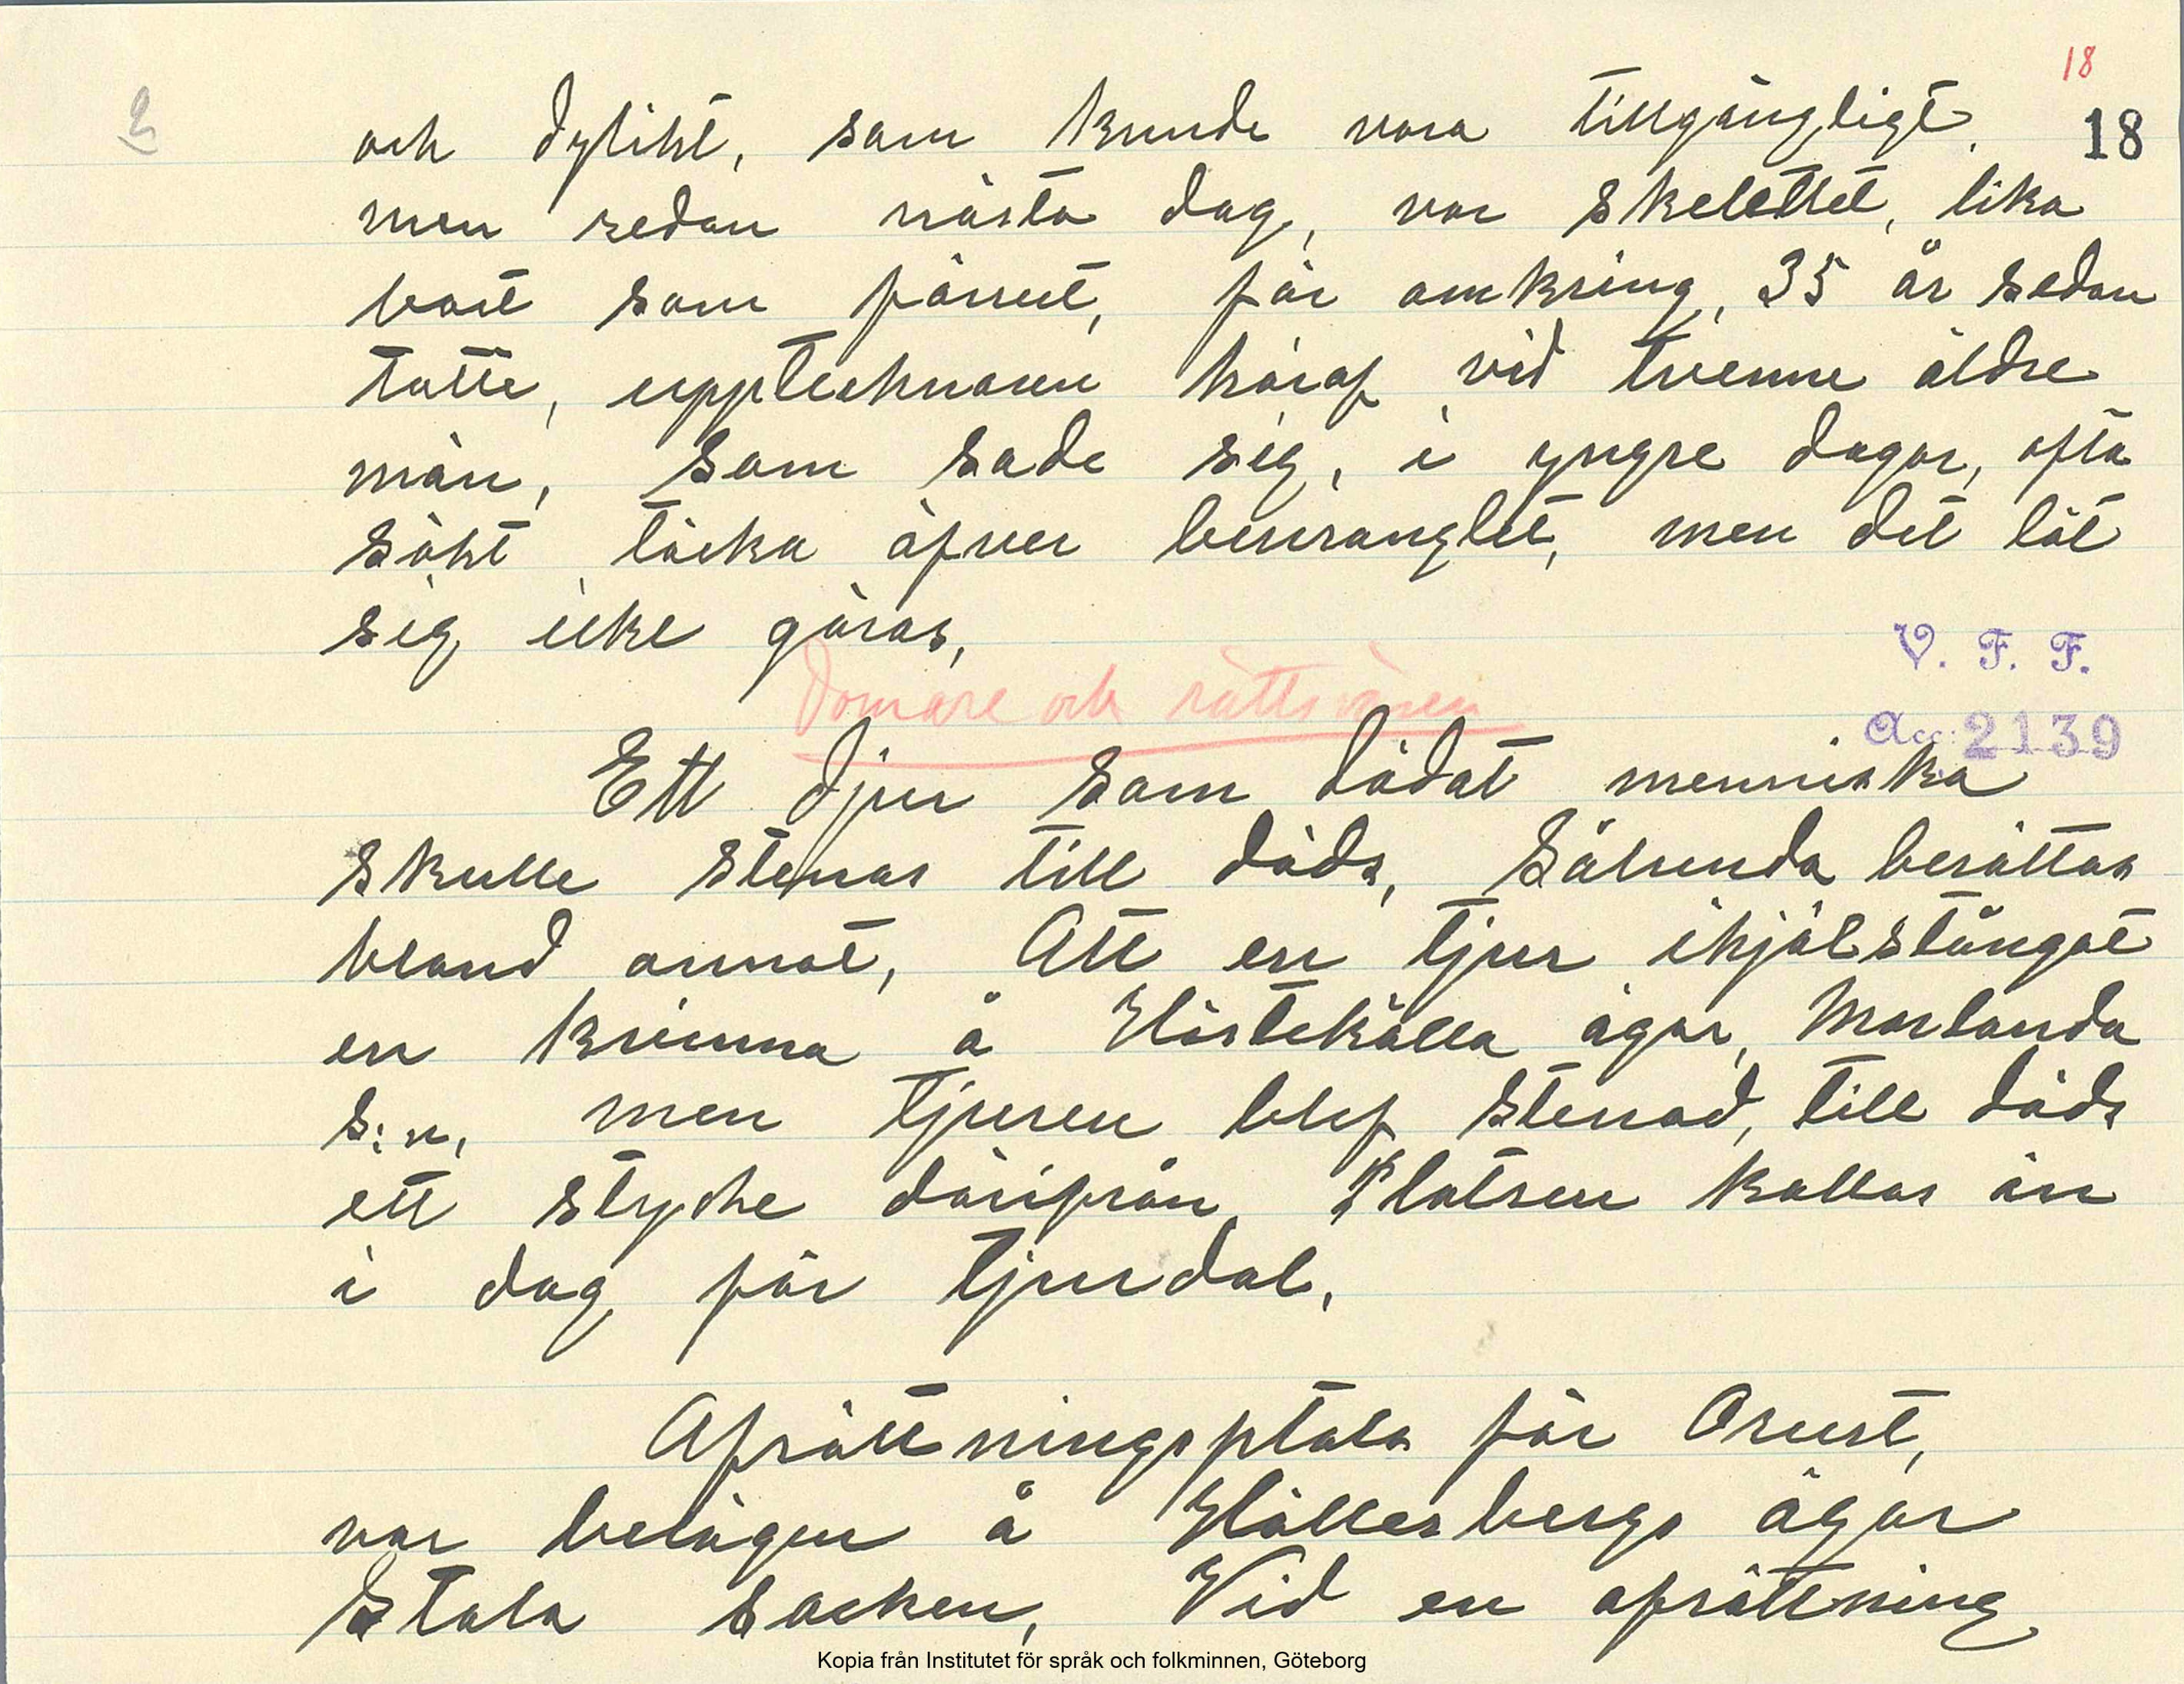 18
och dylikt, som kunde vara tillgängligt, 18
men redan nästa dag, var skelettet, lika
bart som förrut, för omkring, 35 år sedan
talte, upptecknaren häraf vid tvenne äldre
män, som sade sig, i yngre dagar, ofta
sökt täcka öfver benranglet, men det lät
sig icke göras,
Domare och rättsväsen
V. F. F.
Acc: 2139
Ett djur som dödat menniska
skulle stenas till döds, Sålunda berättas
bland annat, Att en tjur ihjälstångat
en kvinna å Hästekälla ägor, Morlanda
s:n, men tjuren blef stenad, till döds
ett stycke därifrån, Platsen kallas än
i dag för Tjurdal,
Afrättningsplats för Orust,
var belägen å Hällesbergs ägor
Stala Socken, Vid en afrättning
Kopia från Institutet för språk och folkminnen, Göteborg